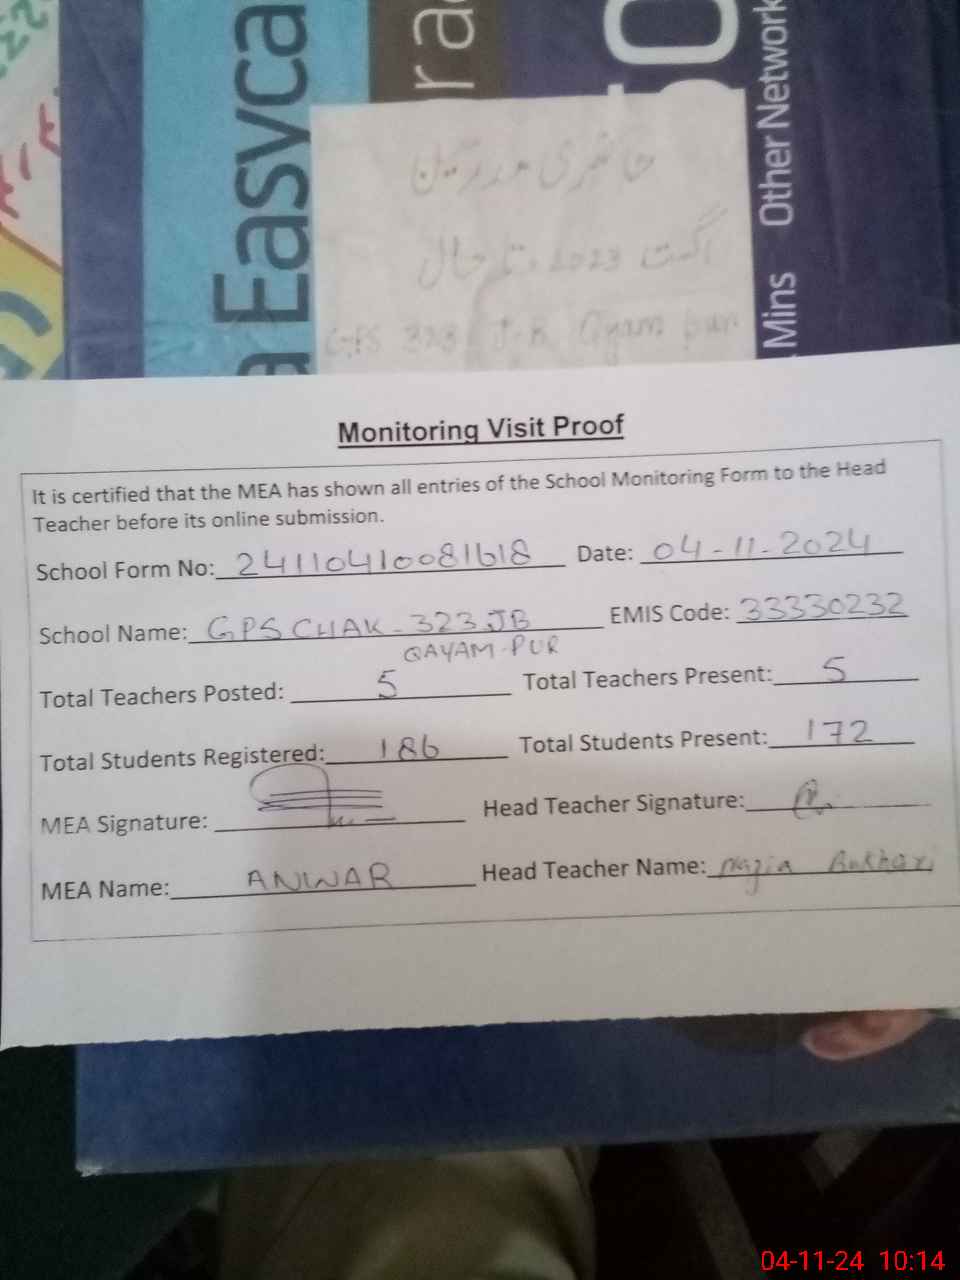 Easyca
Other Network
Mins
حاضری مدرسین
اگست 2023 تا حال
GPS 323 J.B Qyam pur
Monitoring Visit Proof
It is certified that the MEA has shown all entries of the School Monitoring Form to the Head
Teacher before its online submission.
School Form No: 24110410081618 Date: 04-11-2024
School Name: GPS CHAK-323 JB EMIS Code: 33330232
QAYAM-PUR
Total Teachers Posted: 5 Total Teachers Present: 5
Total Students Registered: 186 Total Students Present: 172
MEA Signature: Head Teacher Signature:
MEA Name: ANWAR Head Teacher Name: Nazia Bukhari
04-11-24 10:14